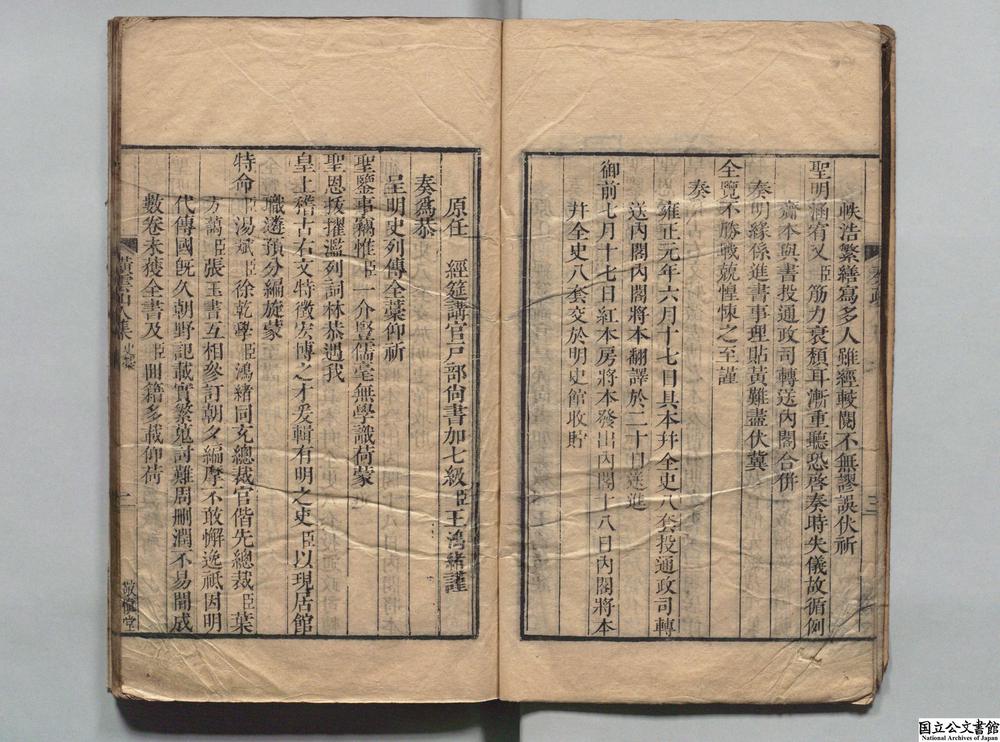 帙浩繁繕寫多人雖經較閱不無謬誤伏祈
聖明涵宥又臣筋力衰頹耳漸重聽恐啓奏時失儀故循例
齎本與書投通政司轉送內閣合併
奏明緣係進書事理貼黃難盡伏冀
全覽不勝戰兢惶悚之至謹
奏
雍正元年六月十七日具本幷全史八套投通政司轉
送內閣內閣將本翻譯於二十日送進
御前七月十七日紅本房將本發出內閣十八日內閣將本
幷全史八套交於明史館收貯
原任 經筵講官戶部尙書加七級臣王鴻緒謹
奏爲恭
呈明史列傳全藁仰祈
聖鑒事竊惟臣一介豎儒毫無學識荷蒙
聖恩拔擢濫列詞林恭遇我
皇上稽古右文特徵宏博之才爰輯有明之史臣以現居館
職遴預分編旋蒙
特命臣湯斌臣徐乾學臣鴻緒同充總裁官偕先總裁臣葉
方藹臣張玉書互相參訂朝夕編摩不敢懈逸祗因明
代傳國旣久朝野記載實繁蒐討難周删潤不易閒成
數卷未獲全書及臣囘籍多載仰荷
橫雲山人集
史藁
二
敬愼堂
国立公文書館
National Archives of Japan